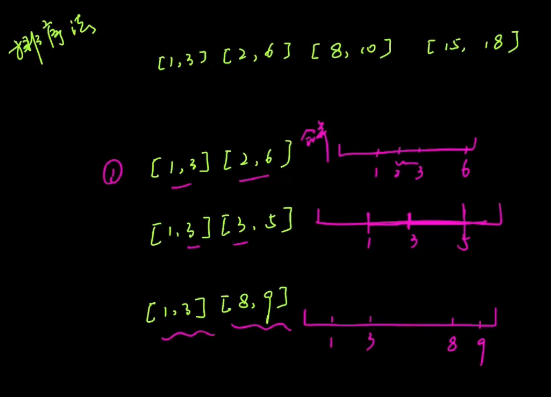 [1,3] [2,6] [8,10] [15,18]
① [1,3] [2,6]
1 2 3 6
[1,3] [3,5]
1 3 5
[1,3] [8,9]
1 3 8 9